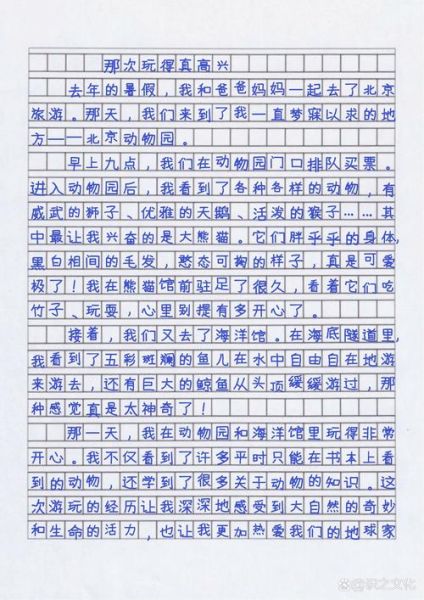 那次玩得真高兴
去年的暑假，我和爸爸妈妈一起去了北京
旅游。那天，我们来到了我一直梦寐以求的地
方——北京动物园。
早上九点，我们在动物园门口排队买票。
进入动物园后，我看到了各种各样的动物，有
威武的狮子、优雅的天鹅、活泼的猴子……其
中最让我兴奋的是大熊猫。它们胖乎乎的身体，
黑白相间的毛发，憨态可掬的样子，真是可爱
极了！我在熊猫馆前驻足了很久，看着它们吃
竹子、玩耍，心里到提有多开心了。
接着，我们又去了海洋馆。在海底隧道里，
我看到了五彩斑斓的鱼儿在水中自由自在地游
来游去，还有巨大的鲸鱼从头顶缓缓游过，那
种感觉真是太神奇了！
那一天，我在动物园和海洋馆里玩得非常
开心。我不仅看到了许多平时只能在书本上看
到的动物，还学到了很多关于动物的知识。这
次游玩的经历让我深深地感受到大自然的奇妙
和生命的活力，也让我更加热爱我们的地球家